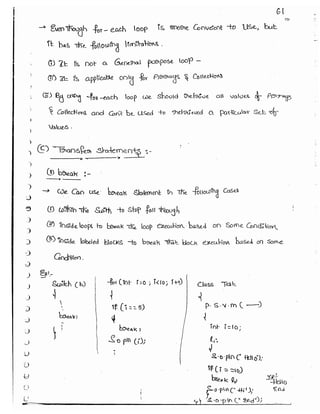 61
→ Even though for-each loop is more Convenient to use, but
it has the following limitations.
(i) It is not a General purpose loop -
(ii) It is applicable only for Arrays & Collections
(iii) By using for-each loop we should retrieve all values of Arrays
& Collections and can't be used to retrieved a particular set of
values.
(C) Transfer statements :-
(1) break :-
→ we can use break statement in the following cases
(1) within the switch, to stop fall through
(2) Inside loops to break the loop execution based on Some Condition.
(3) Inside labeled blocks to break that block execution based on Some
Condition.
Ex:-
Switch (b)
{
break;
}
for (int i=0; i<10; i++)
{
if (i==5)
break;
S.o.pln (i);
Class Test
{
P. S. v. m (—)
{
int i=10;
l1:
{
S.o.pln (" Hello");
if (i==10)
break l1;
S.o.pln (" Hi");
} S.o.pln (" End");
Hello
End